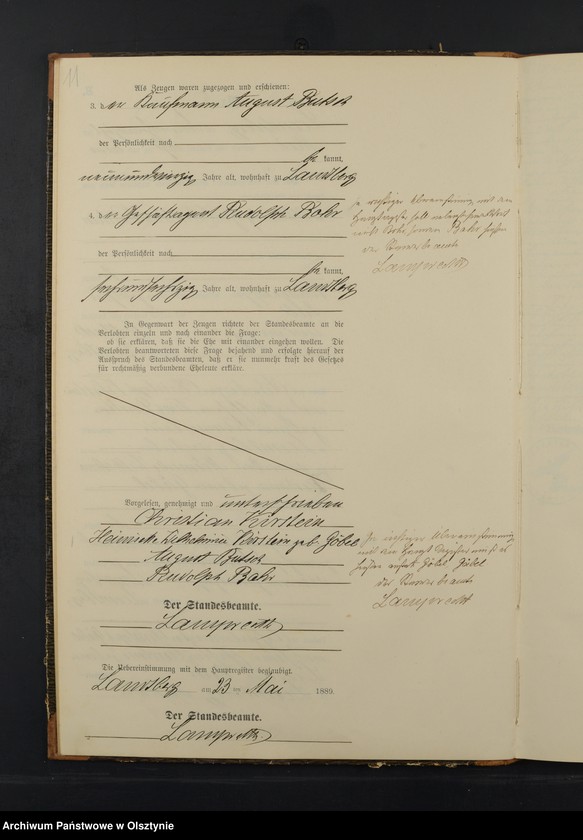 11
Als Zeugen waren zugezogen und erschienen:
3. der Kaufmann August Butsch
der Persönlichkeit nach
be kannt,
neunundvierzig Jahre alt, wohnhaft zu Landsberg
4. der Geschäftsagent Rudolph Bahr
der Persönlichkeit nach
be kannt,
sechsundsechszig Jahre alt, wohnhaft zu Landsberg
In Gegenwart der Zeugen richtete der Standesbeamte an die
Verlobten einzeln und nach einander die Frage:
ob sie erklären, daß sie die Ehe mit einander eingehen wollen. Die
Verlobten beantworteten diese Frage bejahend und erfolgte hierauf der
Ausspruch des Standesbeamten, daß er sie nunmehr kraft des Gesetzes
für rechtmäßig verbundene Eheleute erkläre.
Vorgelesen, genehmigt und unterschrieben
Christian Kirstein
Henriette Wilhelmine Kirstein geb. Göbel
August Butsch
Rudolph Bahr
Der Standesbeamte.
Lamprecht
Die Uebereinstimmung mit dem Hauptregister beglaubigt.
Landsberg am 23 ten Mai 1889.
Der Standesbeamte.
Lamprecht
In richtiger Übereinstimmung mit dem
Hauptregister soll
nicht Bahr
Der Standesbeamte
Lamprecht
In richtiger Übereinstimmung
mit dem Haupt Register muß es
heißen anstatt Göbel
der Standesbeamte
Lamprecht
Archiwum Państwowe w Olsztynie